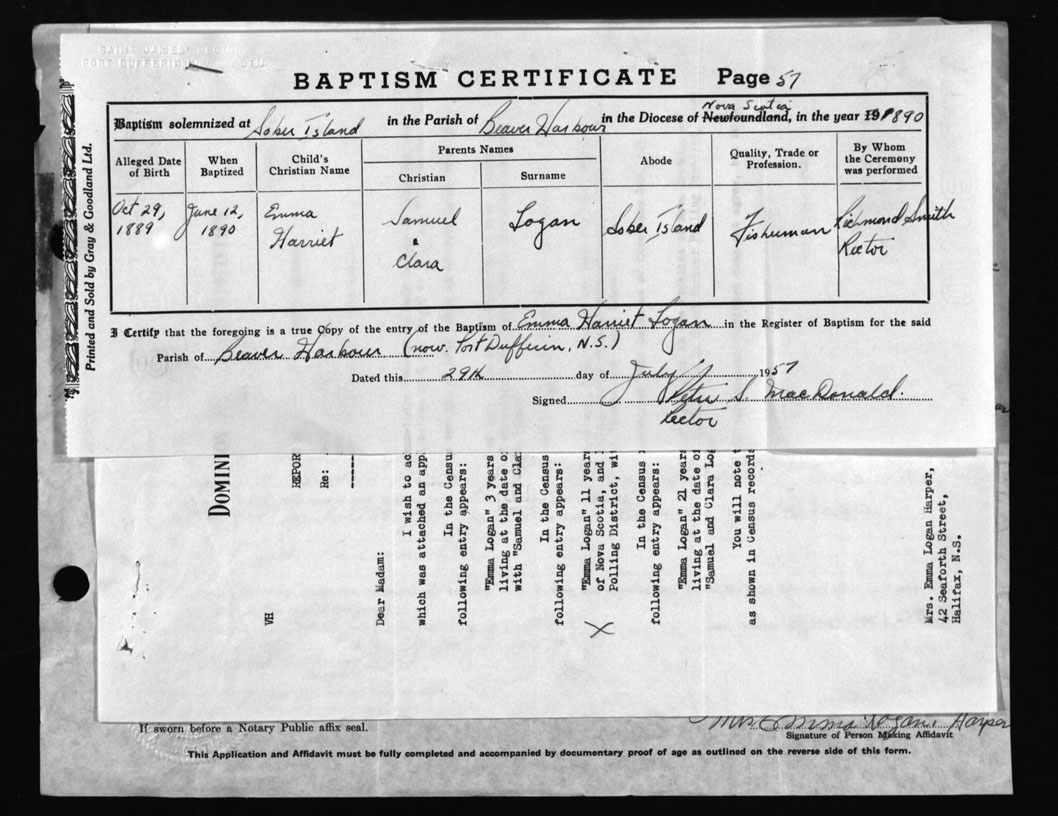 SAINT JAMES RECTORY
PORT DUFFERIN
BAPTISM CERTIFICATE Page 57
Nova Scotia
Baptism solemnized at Sober Island in the Parish of Beaver Harbour in the Diocese of Newfoundland, in the year 1890
Alleged Date of Birth
When Baptized
Child's Christian Name
Parents Names
Christian
Surname
Abode
Quality, Trade or Profession.
By Whom the Ceremony was performed
Oct 29, 1889
June 12, 1890
Emma Harriet
Samuel & Clara
Logan
Sober Island
Fisherman
Richmond Smith Rector
I Certify that the foregoing is a true Copy of the entry of the Baptism of Emma Harriet Logan in the Register of Baptism for the said
Parish of Beaver Harbour (now. Port Dufferin, N.S.)
Dated this 29th day of July 1957
Signed Peter S. MacDonald.
Rector
Printed and Sold by Gray & Goodland Ltd.
DOMINI
REPOR
Re:
VH
Dear Madam:
I wish to ac
which was attached an app
In the Censu
following entry appears:
"Emma Logan" 3 years
living at the date o
with "Samuel and Cla
In the Census
following entry appears:
"Emma Logan" 11 year
of Nova Scotia, and
Polling District, wi
In the Census
following entry appears:
"Emma Logan" 21 years
living at the date o
"Samuel and Clara Lo
You will note t
as shown in Census records
Mrs. Emma Logan Harper,
42 Seaforth Street,
Halifax, N.S.
X
If sworn before a Notary Public affix seal.
Mrs Emma Logan Harper
Signature of Person Making Affidavit
This Application and Affidavit must be fully completed and accompanied by documentary proof of age as outlined on the reverse side of this form.